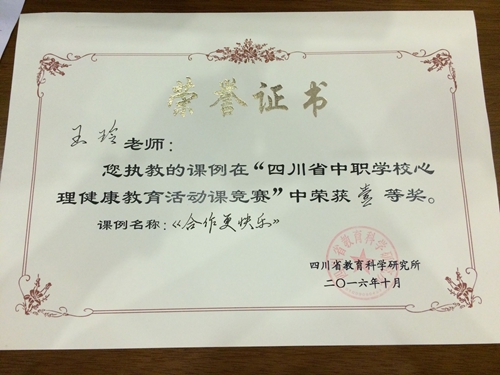 荣誉证书
王玲老师：
您执教的课例在“四川省中职学校心
理健康教育活动课竞赛”中荣获壹等奖。
课例名称：《合作更快乐》
四川省教育科学研究所
二〇一六年十月